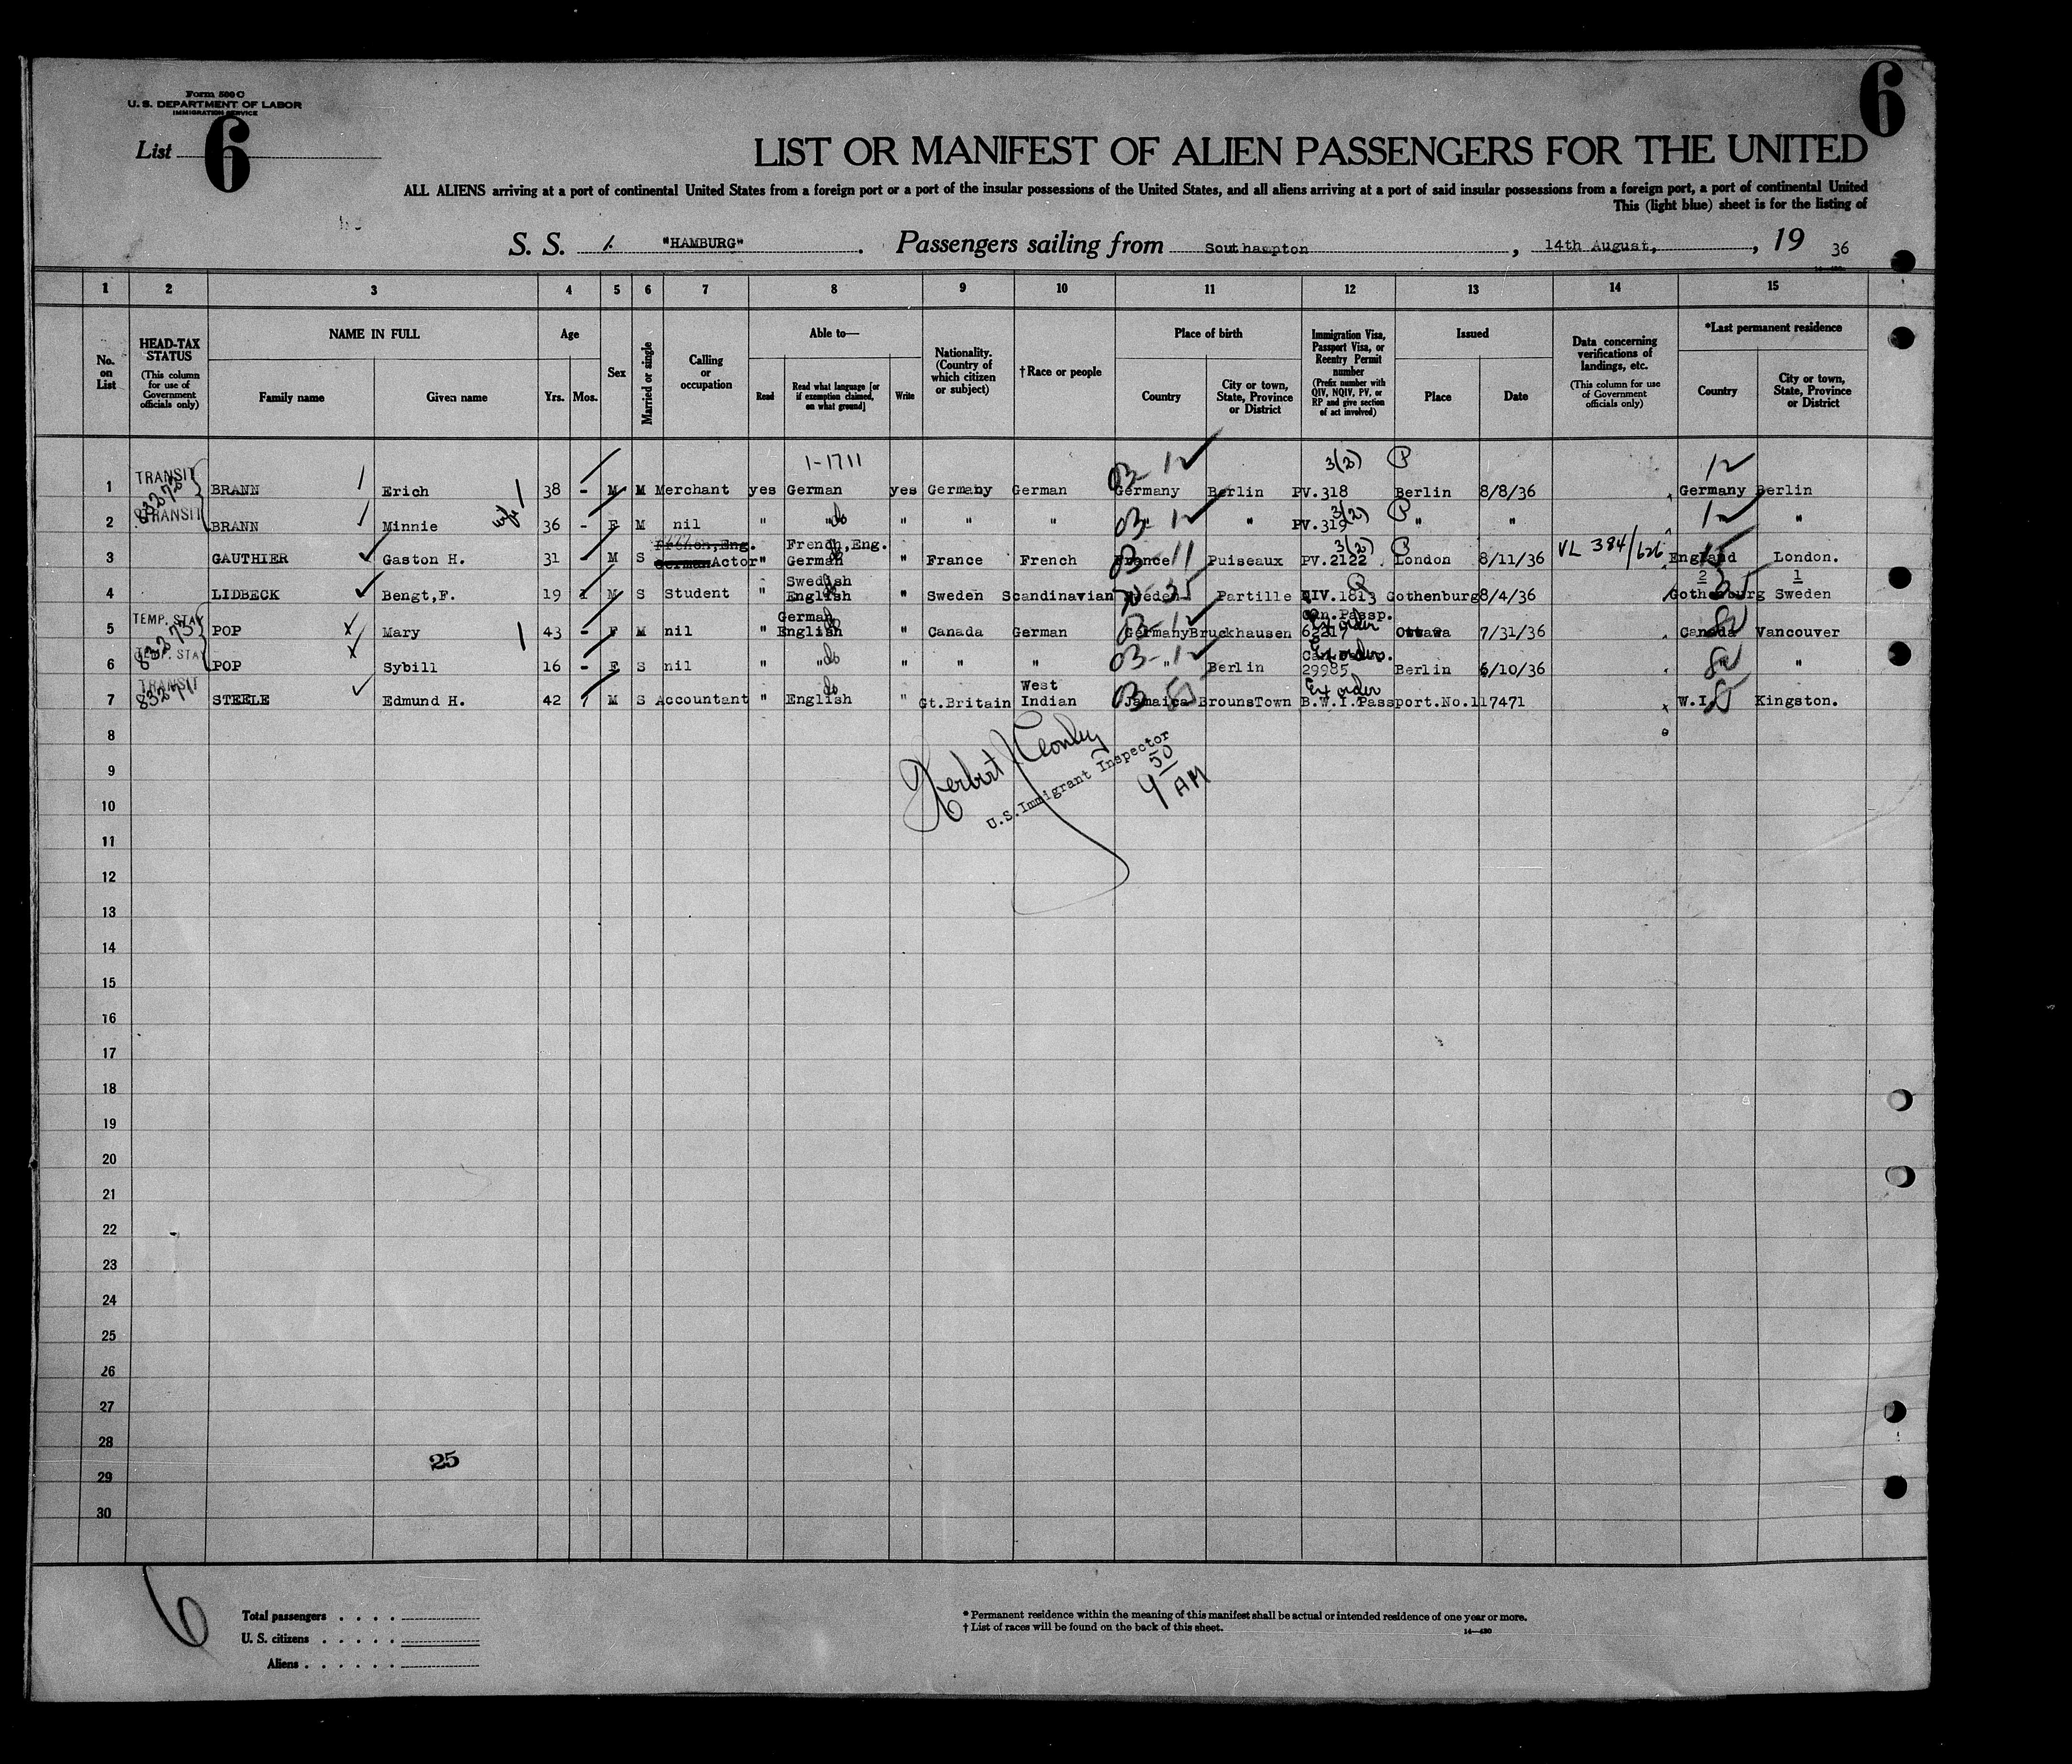 Form 500 C
U. S. DEPARTMENT OF LABOR
IMMIGRATION SERVICE
List 6
6
LIST OR MANIFEST OF ALIEN PASSENGERS FOR THE UNITED
ALL ALIENS arriving at a port of continental United States from a foreign port or a port of the insular possessions of the United States, and all aliens arriving at a port of said insular possessions from a foreign port, a port of continental United
This (light blue) sheet is for the listing of
S. S. "HAMBURG" . Passengers sailing from Southampton , 14th August, , 19 36
1 2 3 4 5 6 7 8 9 10 11 12 13 14 15
No. on List
HEAD-TAX STATUS (This column for use of Government officials only)
NAME IN FULL
Family name Given name
Age
Yrs. Mos.
Sex
Married or single
Calling or occupation
Able to—
Read Read what language [or if exemption claimed, on what ground] Write
Nationality. (Country of which citizen or subject)
†Race or people
Place of birth
Country City or town, State, Province or District
Immigration Visa, Passport Visa, or Reentry Permit number (Prefix number with QIV, NQIV, PV, or RP and give section of act involved)
Issued
Place Date
Data concerning verifications of landings, etc. (This column for use of Government officials only)
*Last permanent residence
Country City or town, State, Province or District
1-1711 03-12 3(2) P 12
1 TRANSIT BRANN Erich 38 - M M Merchant yes German yes Germany German Germany Berlin PV.318 Berlin 8/8/36 Germany Berlin
83272
2 TRANSIT BRANN Minnie 36 - F M nil " " do " " " 03-12 " " PV.319 3(2) P " " 12 " "
French,Eng. French,Eng. 3(2) P
3 GAUTHIER Gaston H. 31 - M S German Actor " German " France French France 03-11 Puiseaux PV.2122 London 8/11/36 VL 384/626 England 15 London.
Swedish 2 1
4 LIDBECK Bengt,F. 19 1 M S Student " English " Sweden Scandinavian Sweden 35 Partille QIV.1813 Gothenburg 8/4/36 Gothenburg Sweden
TEMP. STAY German Can.Passp.
5 POP Mary 43 - F M nil " English " Canada German Germany 03-12 Bruckhausen 62217 Ex order Ottawa 7/31/36 Canada Vancouver
83273
6 TEMP. STAY POP Sybill 16 - F S nil " " do " " " 03-12 " Berlin 29985 Berlin 6/10/36 " "
TRANSIT West Ex order
7 83271 STEELE Edmund H. 42 M S Accountant " English do " Gt.Britain Indian Jamaica BrounsTown B.W.I.Passport.No.117471 W.I. Kingston.
8
Herbert Conley
U.S.Immigrant Inspector
9 50 AM
9
10
11
12
13
14
15
16
17
18
19
20
21
22
23
24
25
26
27
28
25
29
30
6
Total passengers . . . .
U. S. citizens . . . . .
Aliens . . . . . .
* Permanent residence within the meaning of this manifest shall be actual or intended residence of one year or more.
† List of races will be found on the back of this sheet.
14—430